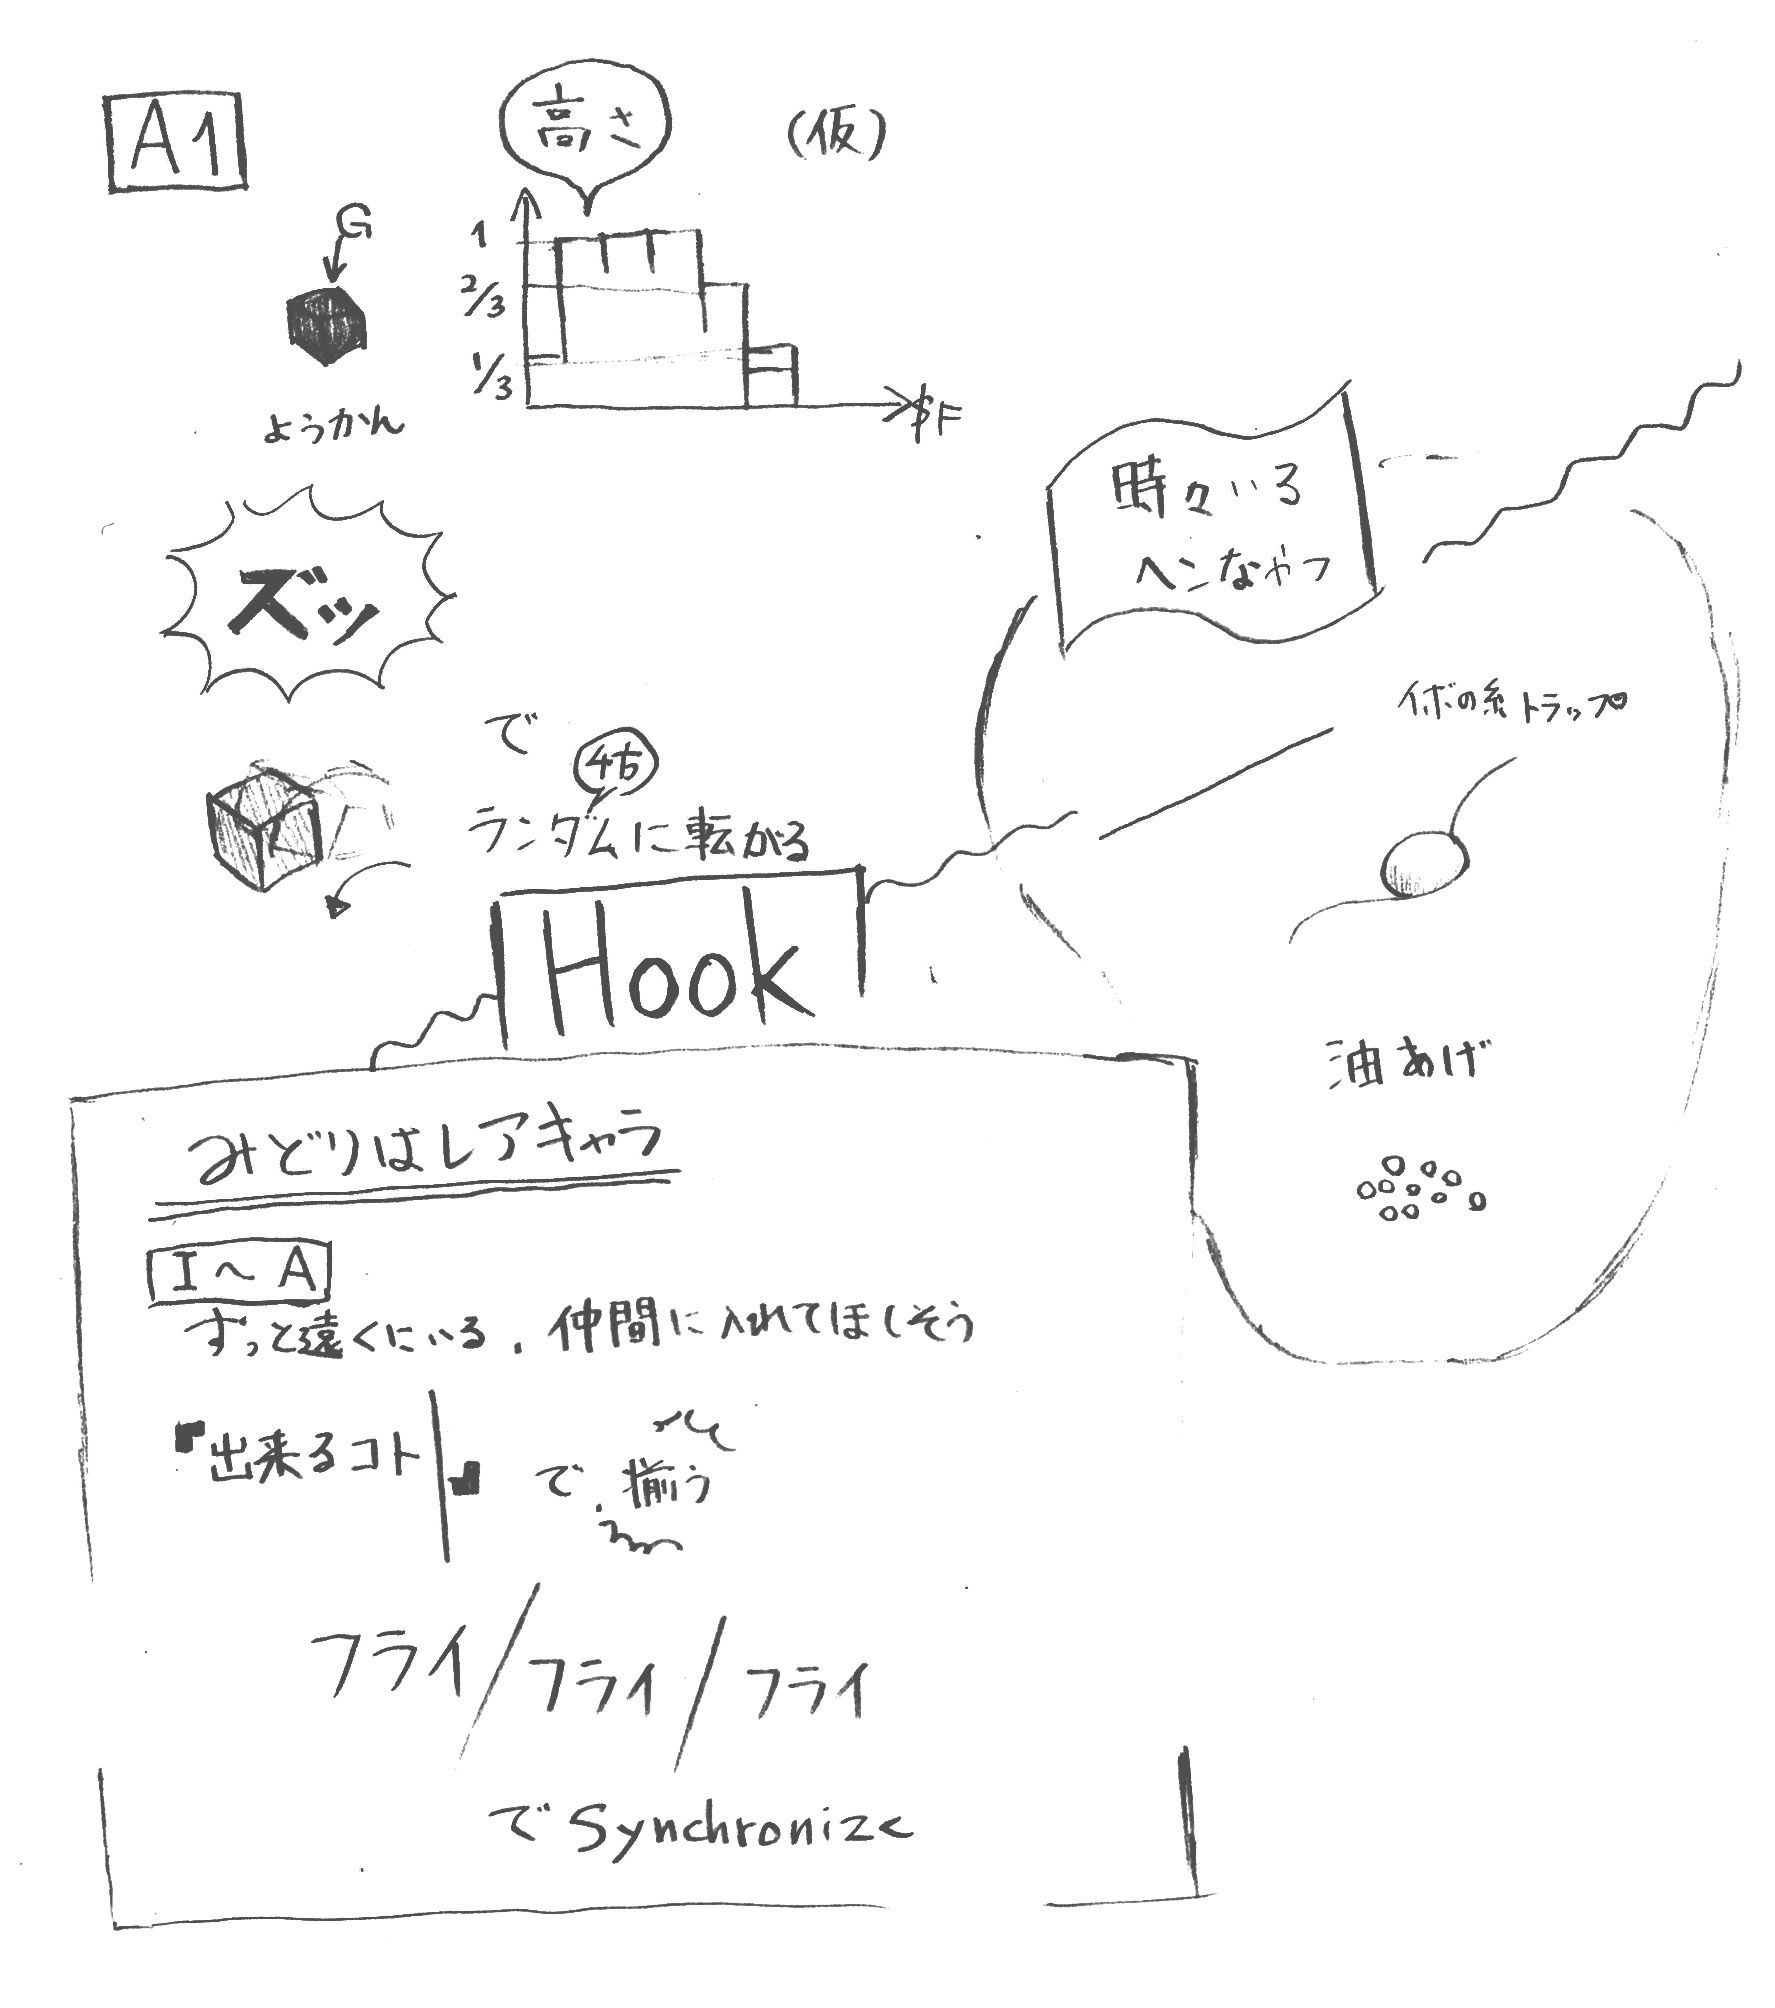 A1
高さ
(仮)
G
1
2/3
1/3
$F
ようかん
ズッ
時々いる
ヘンなやつ
イボの糸トラップ
で
ランダムに転がる
Hook
油あげ
みどりはレアキャラ
I〜A
ずっと遠くにいる. 仲間に入れてほしそう
「出来るコト」で.揃う
フライ/フライ/フライ
でSynchronize